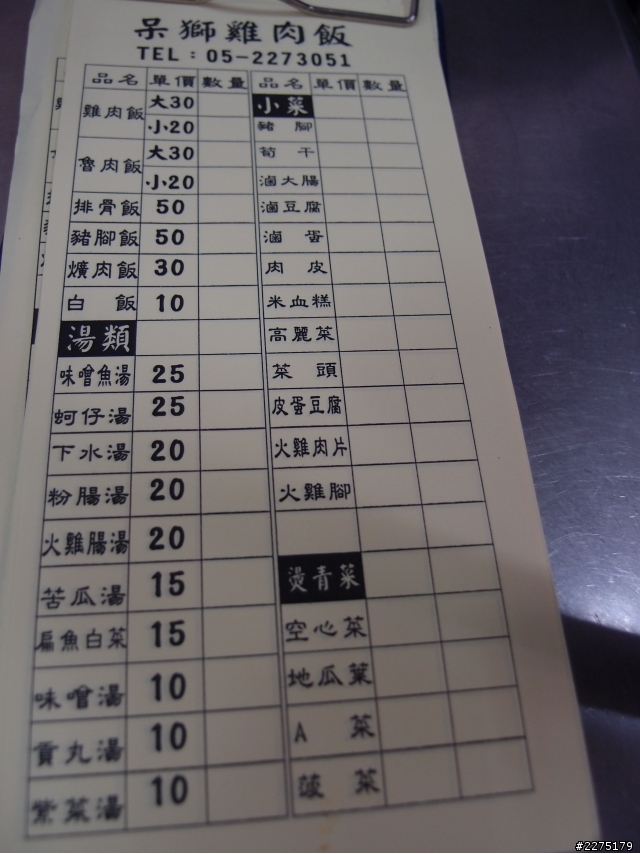 呆獅雞肉飯
TEL：05-2273051
品名 單價 數量 品名 單價 數量
雞肉飯 大30 小菜
小20 豬腳
魯肉飯 大30 筍干
小20 滷大腸
排骨飯 50 滷豆腐
豬腳飯 50 滷蛋
爌肉飯 30 肉皮
白飯 10 米血糕
湯類 高麗菜
味噌魚湯 25 菜頭
蚵仔湯 25 皮蛋豆腐
下水湯 20 火雞肉片
粉腸湯 20 火雞腳
火雞腸湯 20
苦瓜湯 15 燙青菜
扁魚白菜 15 空心菜
味噌湯 10 地瓜葉
貢丸湯 10 A菜
紫菜湯 10 菠菜
#2275179